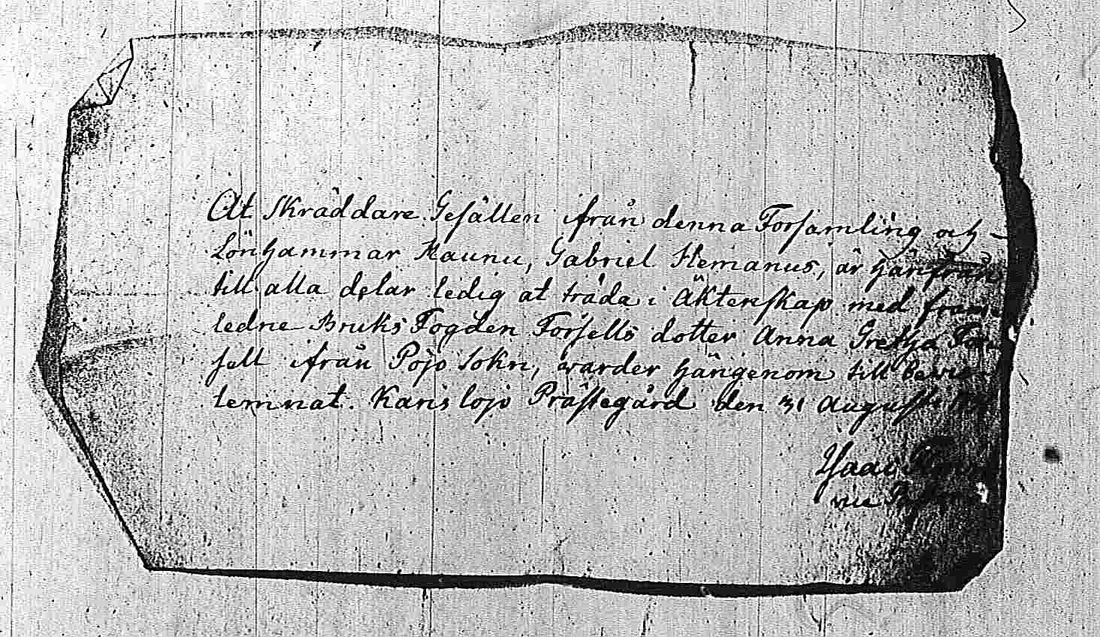 At Skräddare Gesällen ifrån denna Forsamling och
Lönhammar Maunu, Gabriel Hemanus, är härifrån
till alla delar ledig at träda i Äktenskap med fram
ledne Bruks Fogden Forsells dotter Anna Gretha For
sell ifrån Pojo Sokn, warder härigenom till bewis
lemnat. Karislojo Prästegård den 31 Augusti
Isaac